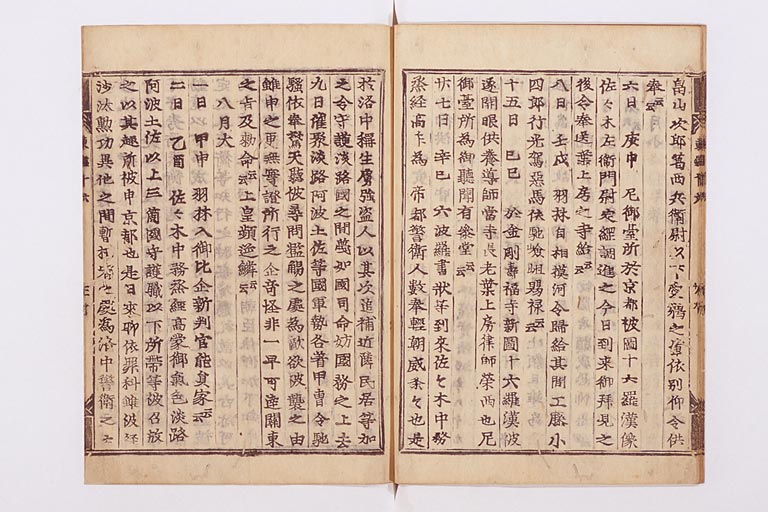 畠山次郎葛西兵衛尉以下愛鷂之輩依別仰令供
奉云云
六日 庚申 尼御臺所於京都被圖十六羅漢像
佐々木左衛門尉定綱調進之今日到来御拜見之
後令奉送葉上房之寺給云云
八日 壬戌 羽林自相摸河令歸給其間工藤小
四郎行光駕惡馬依馳嶮岨賜禄云云
十五日 己巳 於金剛壽福寺新圖十六羅漢被
遂開眼供養導師當寺長老葉上房律師榮西也尼
御臺所為御聽聞有參堂云云
廿七日 辛巳 六波羅書狀等到来佐々木中務
丞経高乍為帝都警衛人数奉輕朝威条々也是
於洛中搦生虜強盗人以其次追補近薄民居等加
之令守護淡路國之間蔑如國司命妨國務之上去
九日催聚淡路阿波土佐等國軍勢各着甲冑令馳
騒依奉驚天聽被尋問濫觴之處為敵欲被襲之由
雖申之更無実證所行之企奇怪非一早可達關東
之旨及勅命云云上皇頻逆鱗云云
定 八月大
一日 甲申 羽林入御比企新判官能員家云云
二日 乙酉 佐々木中務丞経高蒙御氣色淡路
阿波土佐以上三箇國守護職以下所帶等被召放
之以其趣所被申京都也是日来聊依罪科雖被
沙汰勲功異他之間暫之處為洛中警衛之士